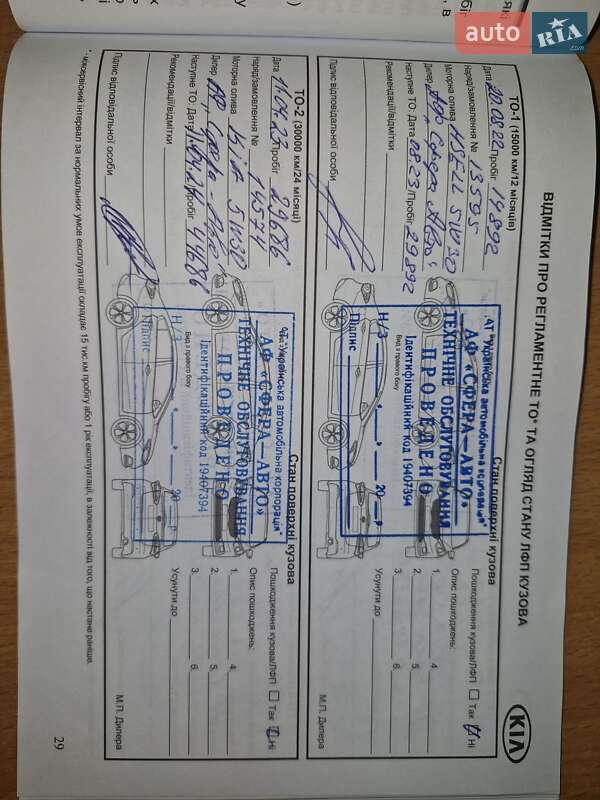 auto RIA.com
ВІДМІТКИ ПРО РЕГЛАМЕНТНЕ ТО* ТА ОГЛЯД СТАНУ ЛФП КУЗОВА
KIA
ТО-1 (15000 км/12 місяців)
Дата 20.08.22 Пробіг 14892
Наряд/замовлення № 13595
Моторна олива 5W30
Дилер АФ Сфера Авто
Наступне ТО: Дата 08.23 /Пробіг 29.892
Рекомендації/відмітки
Підпис відповідальної особи
Стан поверхні кузова
АТ "Українська автомобільна корпорація"
АФ «СФЕРА—АВТО»
ТЕХНІЧНЕ ОБСЛУГОВУВАННЯ
ПРОВЕДЕНО
Ідентифікаційний код 19407394
Вид з правого боку
Н/З 20 р
Підпис
Пошкодження кузова/ЛФП Так Ні
Опис пошкоджень:
1. 4.
2. 5.
3. 6.
Усунути до
М.П. Дилера
ТО-2 (30000 км/24 місяці)
Дата 11.04.23 Пробіг 29686
Наряд/замовлення № 14574
Моторна олива KIA 5W30
Дилер АФ "Сфера-Авто"
Наступне ТО: Дата 11.04.24 /Пробіг 44686
Рекомендації/відмітки
Підпис відповідальної особи
Стан поверхні кузова
"Українська автомобільна корпорація"
АФ «СФЕРА—АВТО»
ТЕХНІЧНЕ ОБСЛУГОВУВАННЯ
ПРОВЕДЕНО
Ідентифікаційний код 19407394
Вид з правого боку
Н/З 20 р
Підпис
Пошкодження кузова/ЛФП Так Ні
Опис пошкоджень:
1. 4.
2. 5.
3. 6.
Усунути до
М.П. Дилера
* міжсервісний інтервал за нормальних умов експлуатації складає 15 тис.км пробігу або 1 рік експлуатації, в залежності від того, що настане раніше.
29